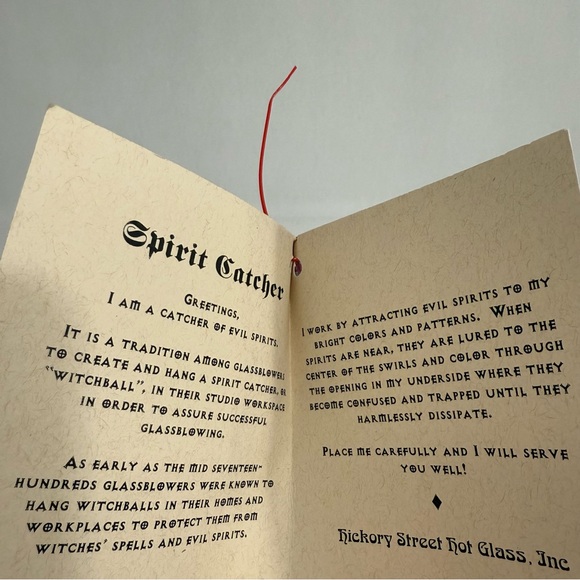 Spirit Catcher
Greetings,
I am a catcher of evil spirits.
It is a tradition among glassblowers
to create and hang a spirit catcher, or
"witchball", in their studio workspace
in order to assure successful
glassblowing.
As early as the mid seventeen-
hundreds glassblowers were known to
hang witchballs in their homes and
workplaces to protect them from
witches' spells and evil spirits.
I work by attracting evil spirits to my
bright colors and patterns. When
spirits are near, they are lured to the
center of the swirls and color through
the opening in my underside where they
become confused and trapped until they
harmlessly dissipate.
Place me carefully and I will serve
you well!
Hickory Street Hot Glass, Inc